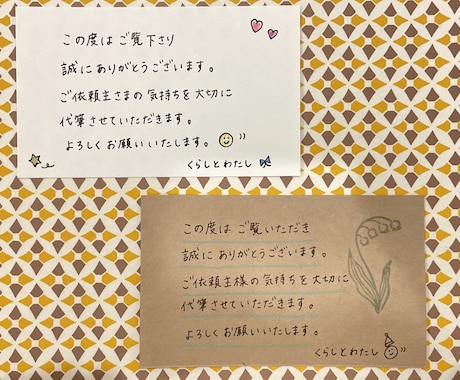 この度は ご覧下さり
誠に ありがとうございます。
ご依頼主さまの 気持ちを 大切に
代筆させていただきます。
よろしく お願いいたします。
くらしとわたし
この度は ご覧いただき
誠に ありがとうございます。
ご依頼主様の 気持ちを 大切に
代筆させていただきます。
よろしく お願いいたします。
くらしとわたし